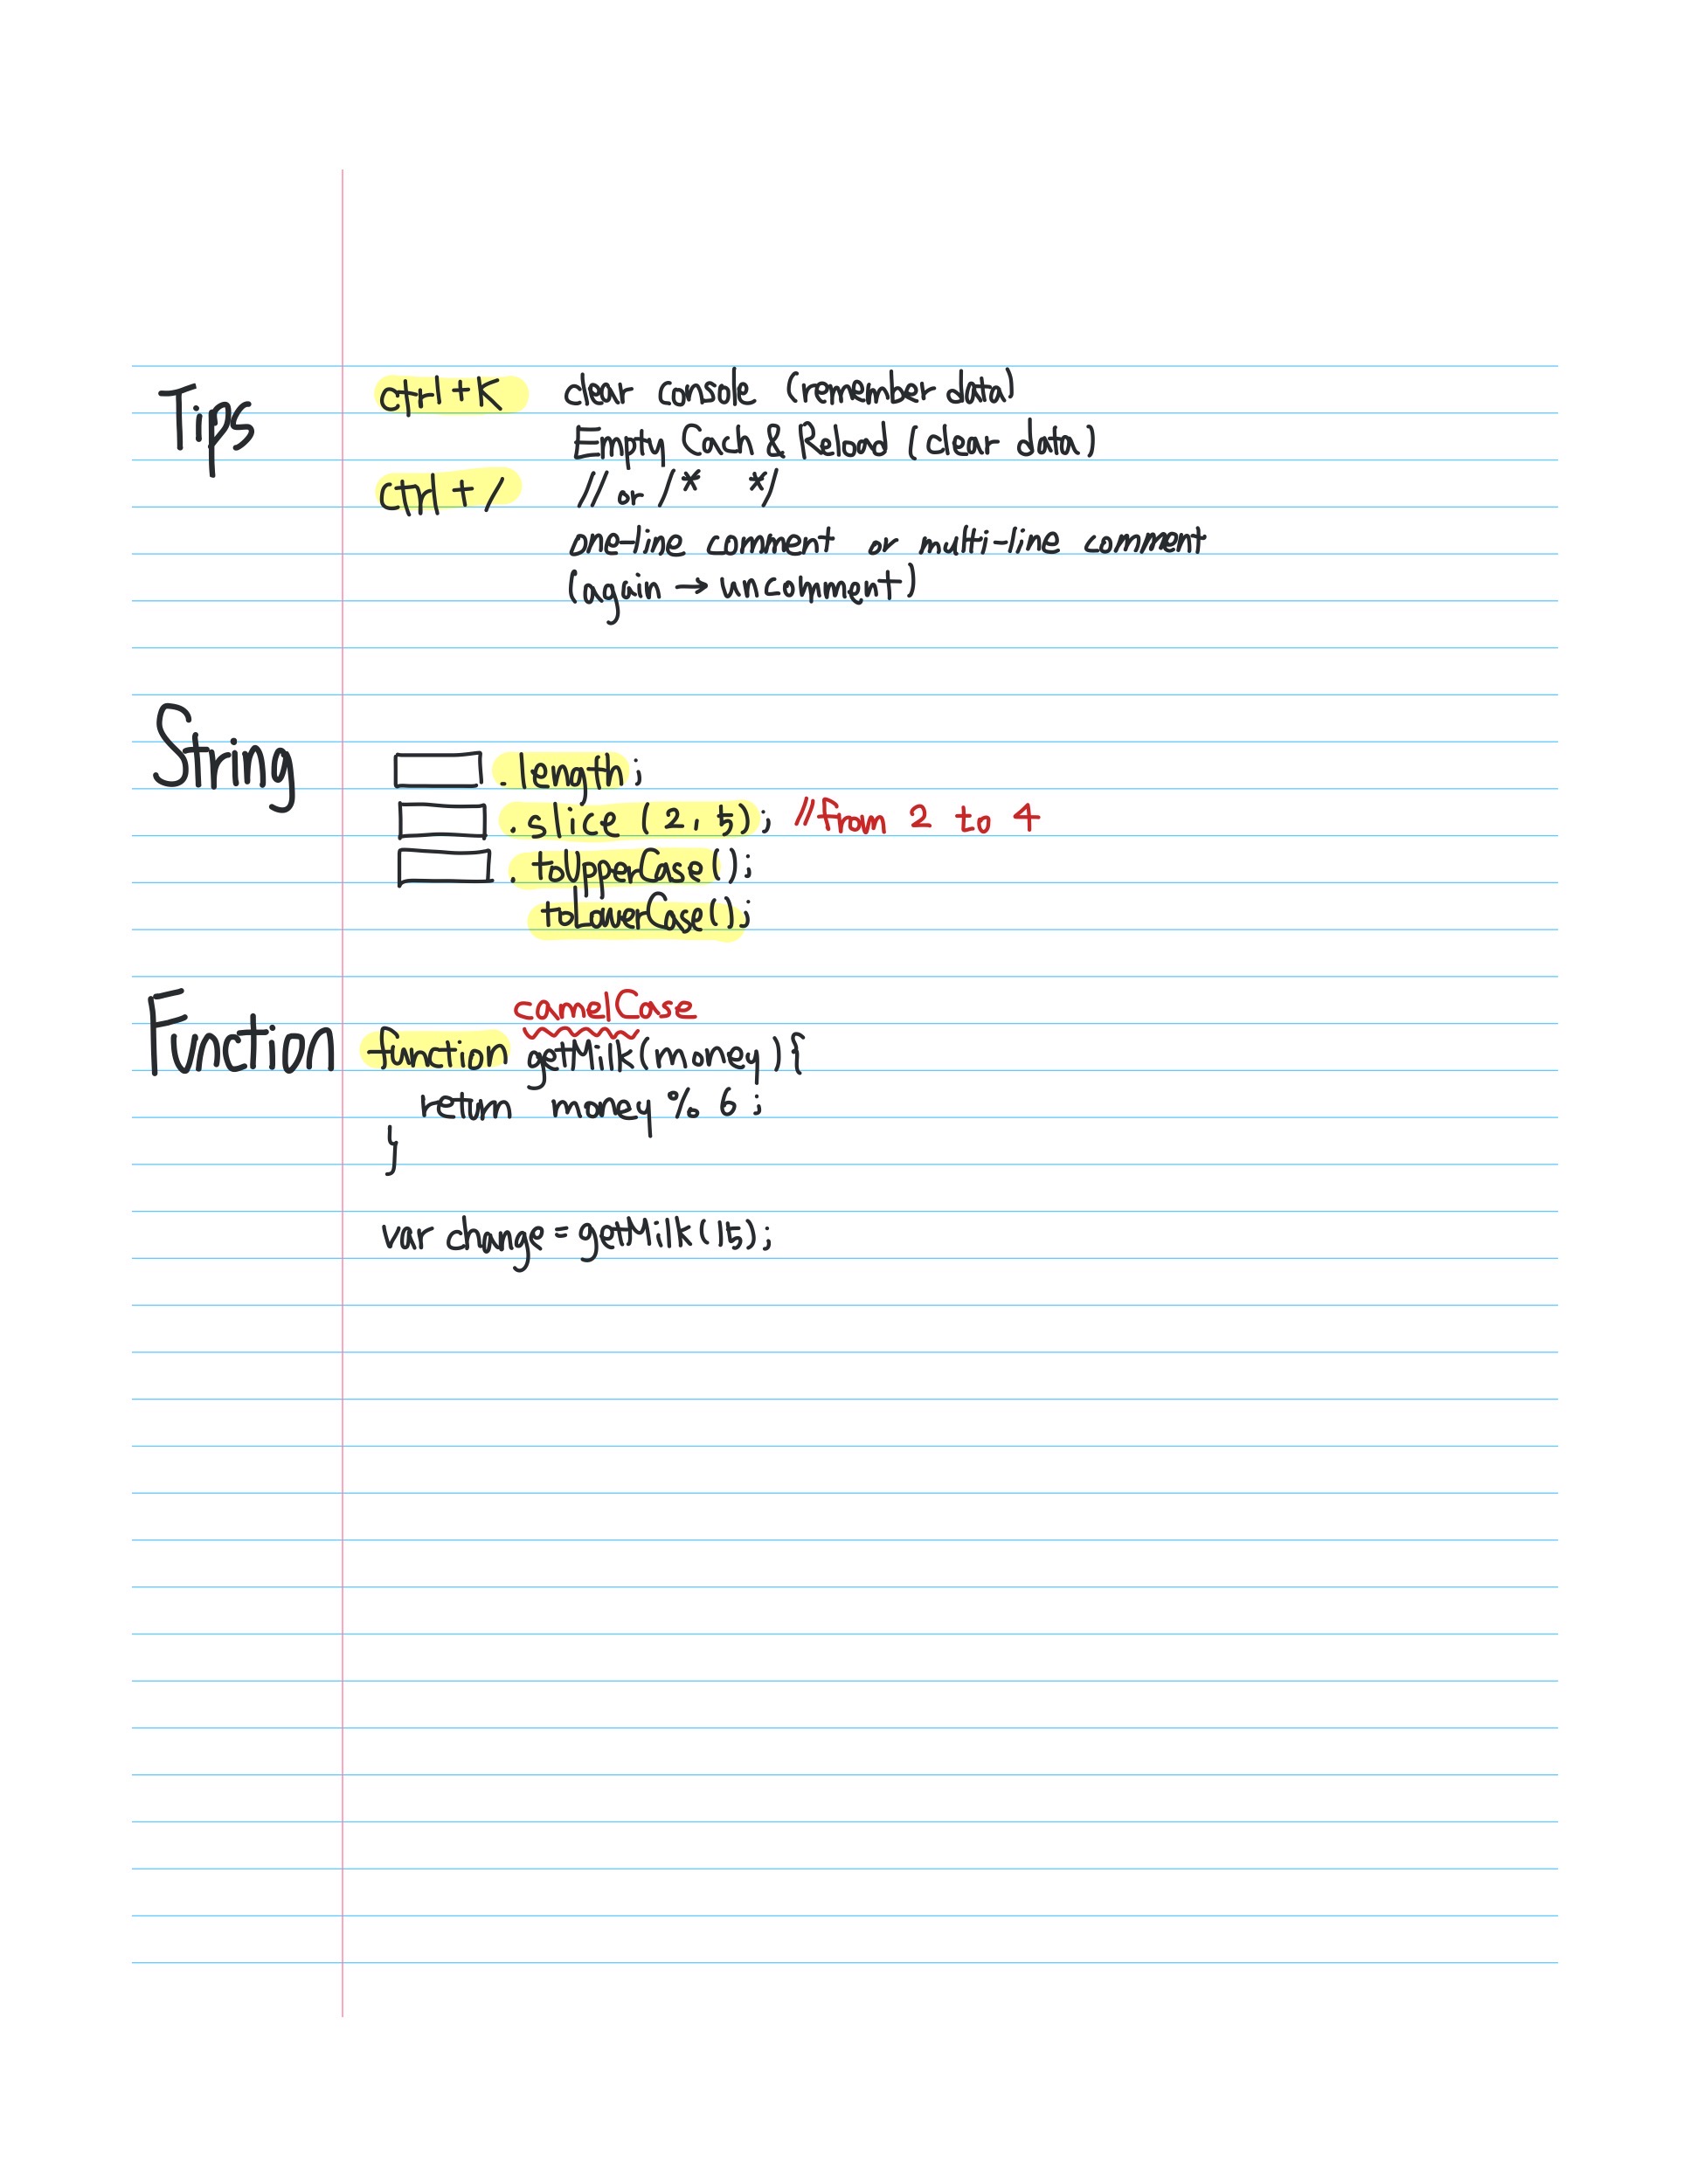 Tips
ctrl+K clear console (remember data)
Empty Cach & Reload (clear data)
ctrl + / // or /* */
one-line comment or multi-line comment
(again → uncomment)
String
.length;
.slice (2, 5); //from 2 to 4
.toUpperCase();
toLowerCase();
Function
camelCase
function getMilk(money){
return money % 6;
}
var change = getMilk(15);